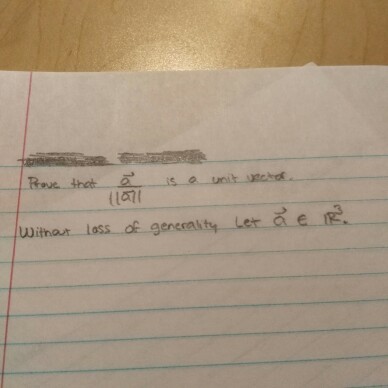 Prove that a⃗/||a⃗|| is a unit vector.
Without loss of generality Let a⃗ ∈ ℝ³.